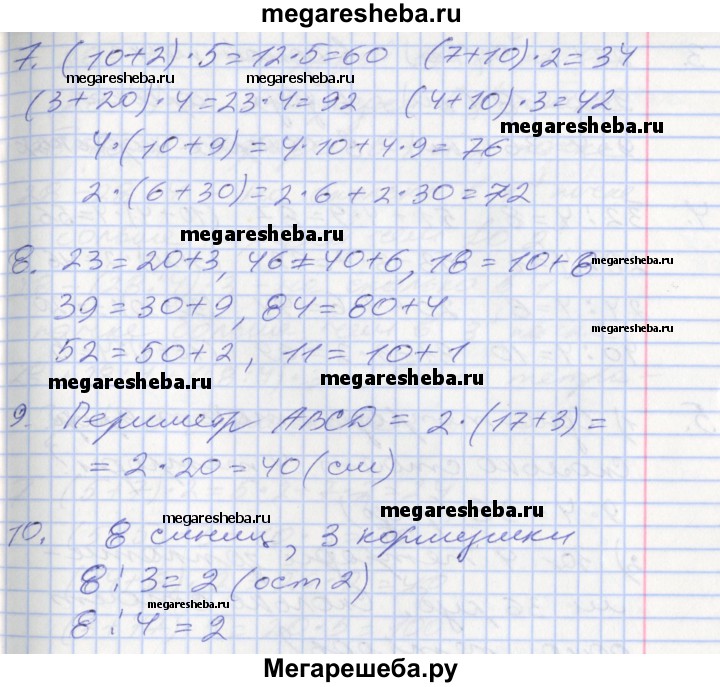 megaresheba.ru
7. (10+2)·5=12·5=60 (7+10)·2=34
megaresheba.ru megaresheba.ru
(3+20)·4=23·4=92 (4+10)·3=42
megaresheba.ru
4·(10+9)=4·10+4·9=76
2·(6+30)=2·6+2·30=72
megaresheba.ru
8. 23=20+3, 46=40+6, 18=10+8
megaresheba.ru
39=30+9, 84=80+4
megaresheba.ru
52=50+2, 11=10+1
megaresheba.ru megaresheba.ru
9. Периметр ABCD = 2·(17+3)=
=2·20=40(см)
megaresheba.ru megaresheba.ru
10. 8 синиц, 3 кормушки
8:3=2(ост2)
megaresheba.ru
8:4=2
Мегарешеба.ру